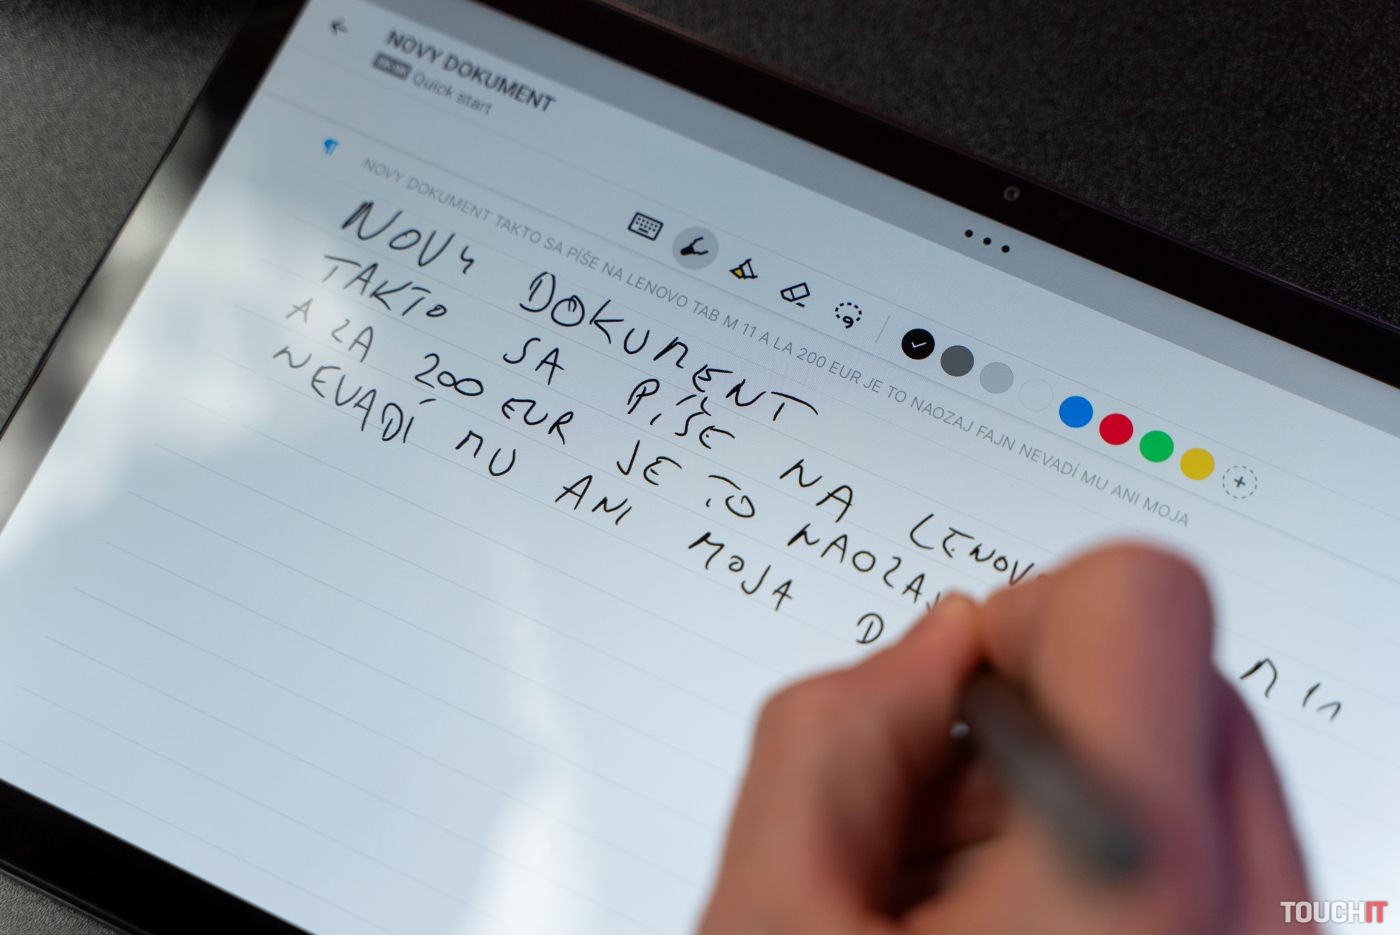 NOVY DOKUMENT
Quick start
NOVY DOKUMENT TAKTO SA PÍŠE NA LENOVO TAB M 11 A LA 200 EUR JE TO NAOZAJ FAJN NEVADÍ MU ANI MOJA
NOVY DOKUMENT
TAKTO SA PÍŠE NA LENOVO M 11
A ZA 200 EUR JE TO NAOZAJ
NEVADÍ MU ANI MOJA D
TOUCHIT